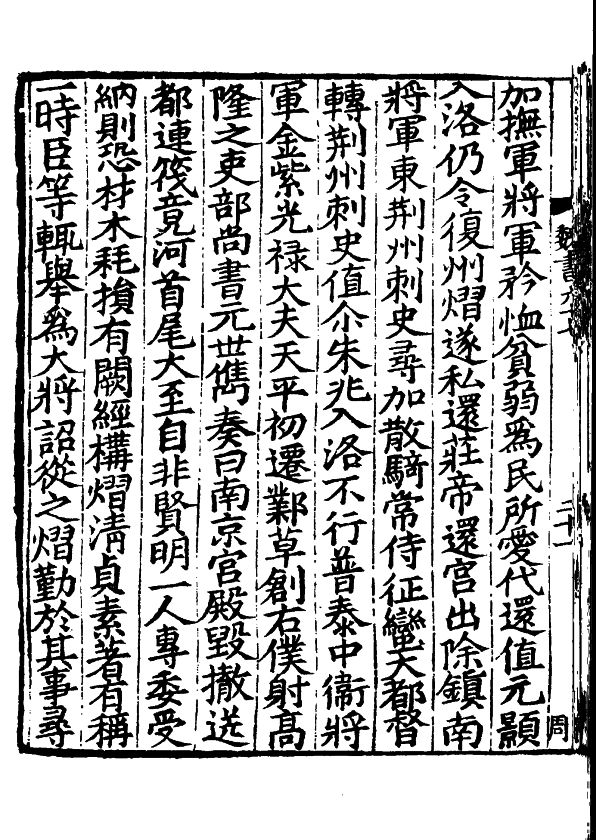 加撫軍將軍矜恤貧弱爲民所愛代還值元顥
入洛仍令復州熠遂私還莊帝還宮出除鎮南
將軍東荆州刺史尋加散騎常侍征蠻大都督
轉荆州刺史值尒朱兆入洛不行普泰中衞將
軍金紫光禄大夫天平初遷鄴草創右僕射髙
隆之吏部尚書元世儁奏曰南京宮殿毀撤送
都連筏竟河首尾大至自非賢明一人專委受
納則恐材木耗損有闕經構熠清貞素著有稱
一時臣等輒舉爲大將詔從之熠勤於其事尋
魏書
二十一
周